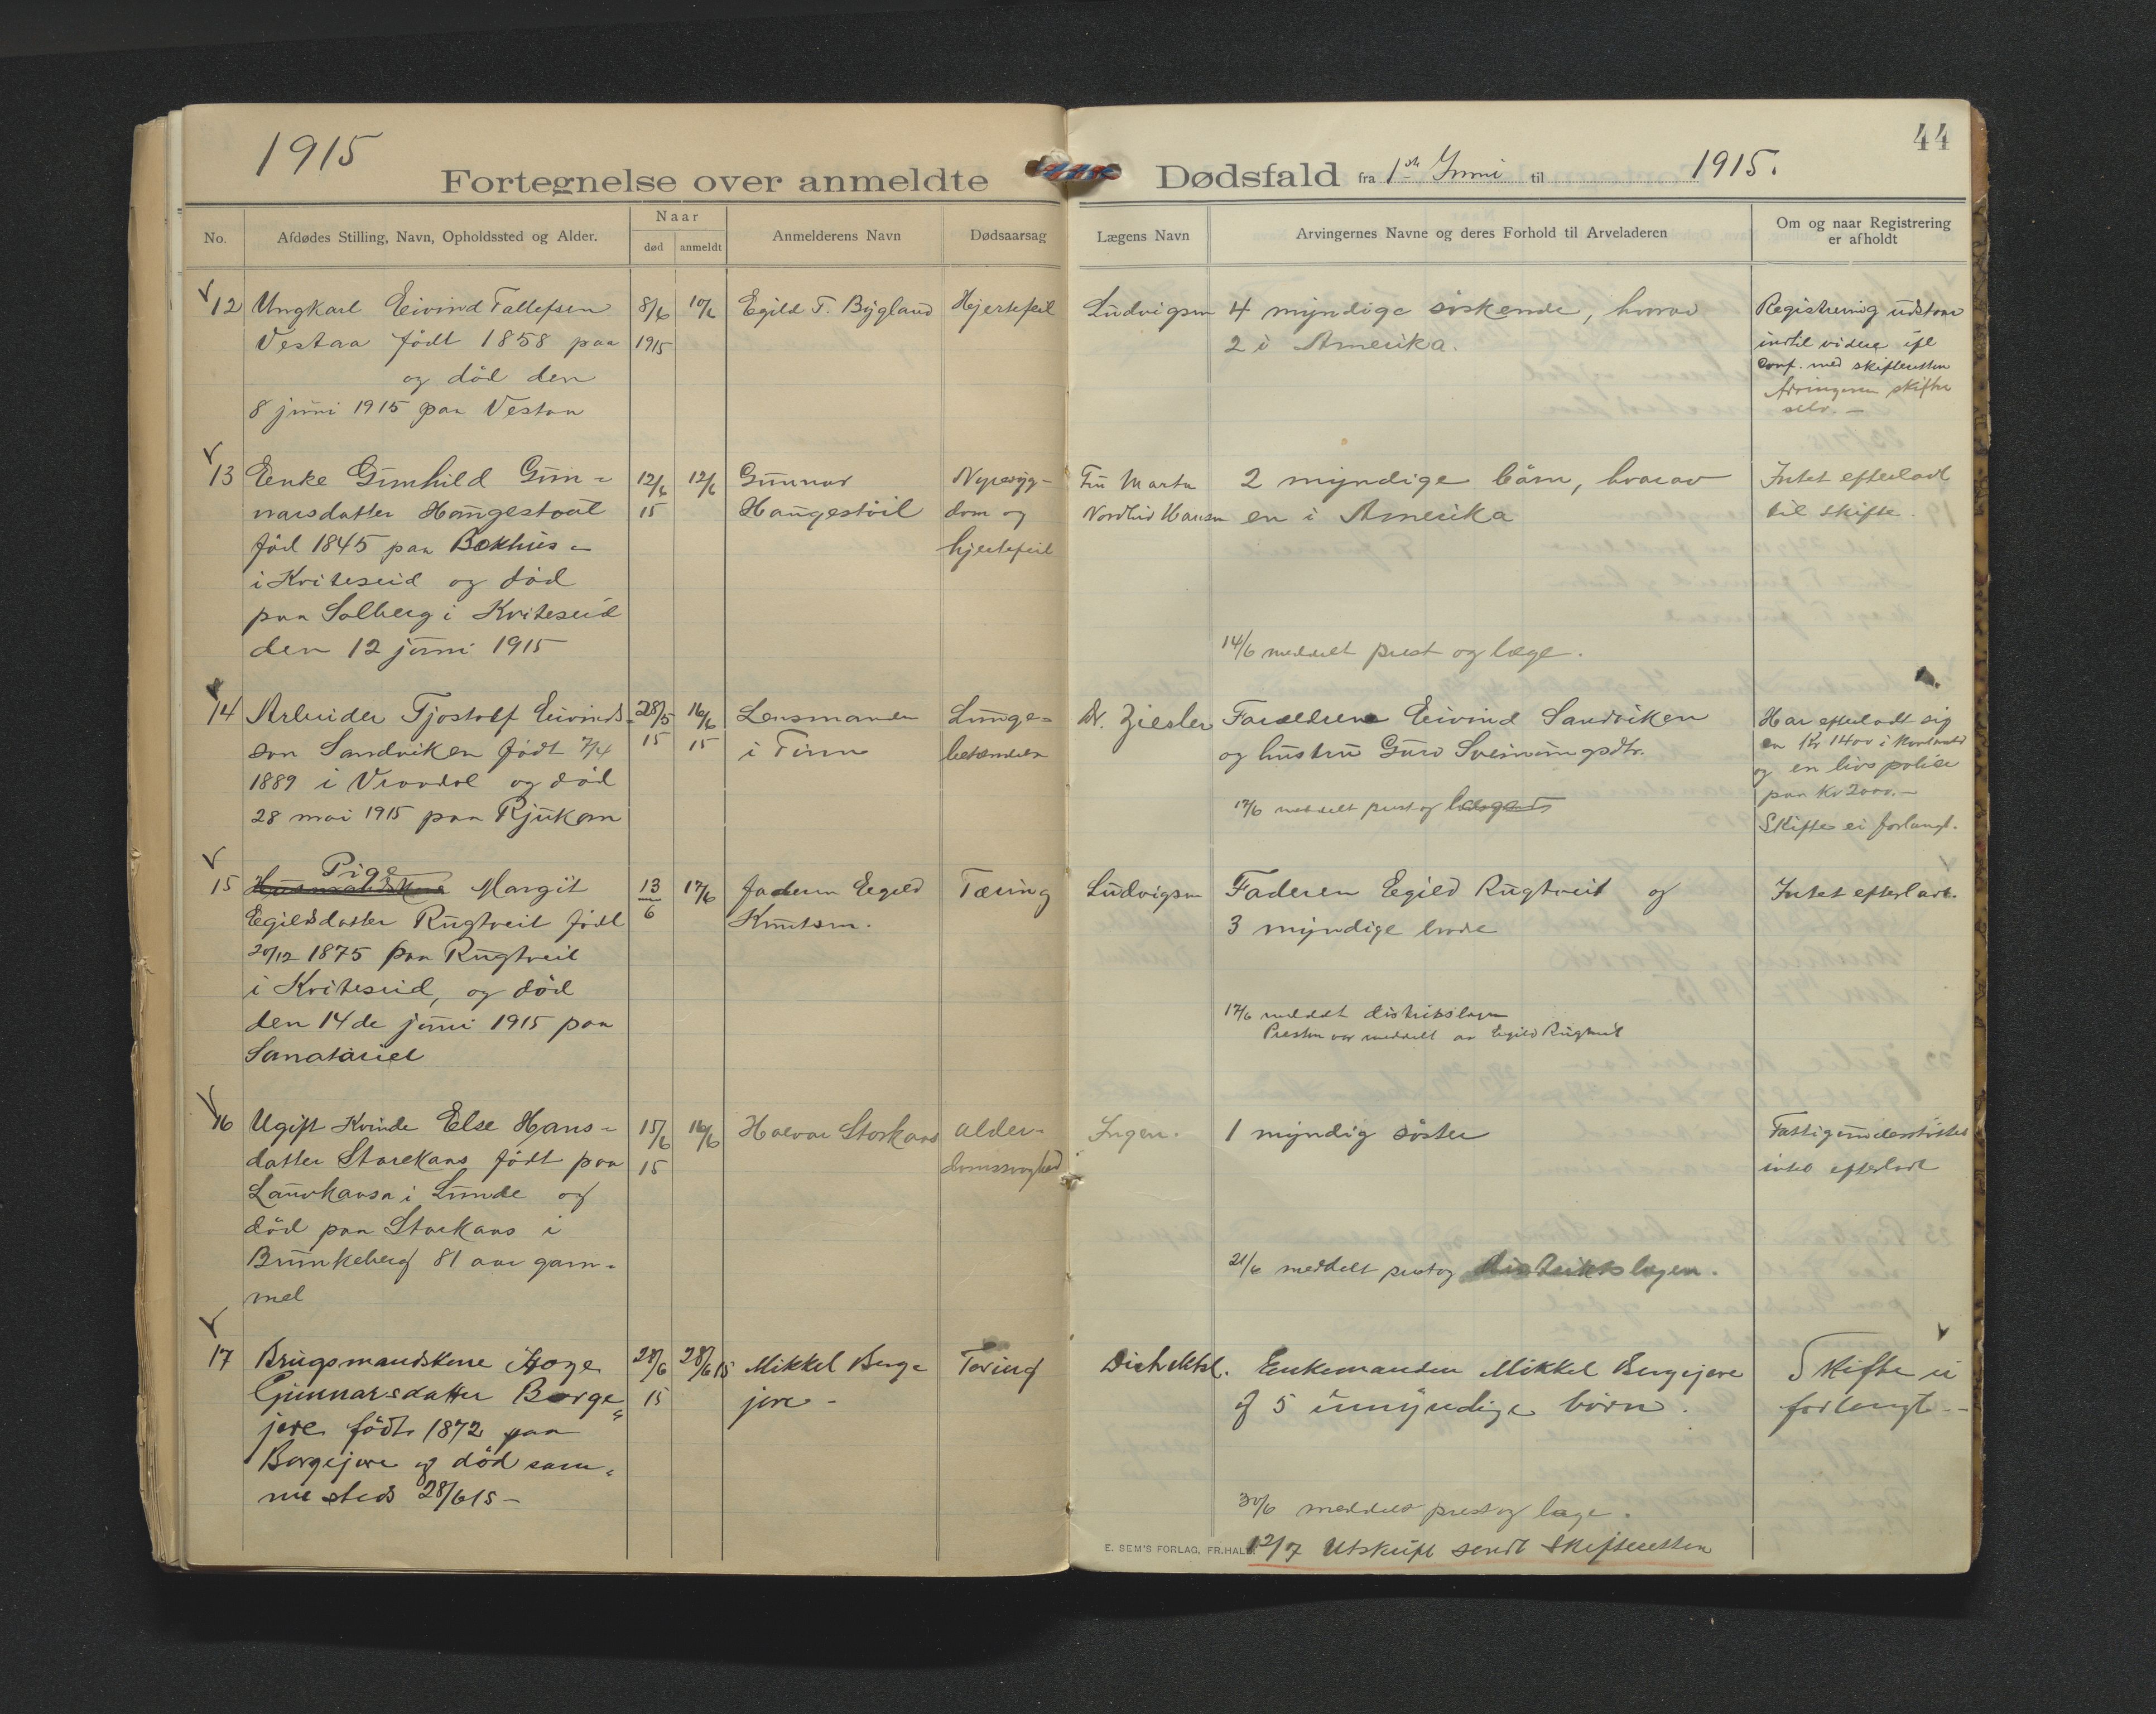 1915
44
Fortegnelse over anmeldte Dødsfald fra 1ste Juni til 1915.
No.
Afdødes Stilling, Navn, Opholdssted og Alder.
Naar
død
anmeldt
Anmelderens Navn
Dødsaarsag
Lægens Navn
Arvingernes Navne og deres Forhold til Arveladeren
Om og naar Registrering
er afholdt
12 Ungkarl Eivind Tallefsen 8/6 10/6 Egild T. Bygland Hjertefeil Ludvigsen 4 myndige söskende, hvorav Registrering udstaar
Vestaa födt 1858 paa 1915 2 i Amerika. indtil videre
og död den conf. med skifteretten
8 juni 1915 paa Vestaa Arvingerne skifter
selv. -
13 Enke Gunhild Gun= 12/6 12/6 Gunnar Nyresyg- Marta 2 myndige börn, hvorav Intet efterladt
narsdatter Haugestoil 15 Haugestöil dom og Nordlid Hansen en i Amerika til skifte.
föd 1845 paa Bekhus= hjertefeil
i Kviteseid og död
paa Solberg i Kviteseid
den 12 juni 1915
14/6 meddelt prest og læge.
14 Arbeider Tjostolf Eivinds= 28/5 16/6 Lensmanden Lunge= Dr. Ziesler Forældrene Eivind Sandviken Har efterladt sig
son Sandviken födt 7/4 15 15 i Tinn betændelse og hustru Guro Sveinungsdtr. en Kr 1400 i
1889 i Vraadal og död og en livspolice
28 mai 1915 paa Rjukan 17/6 meddelt prest og paa Kr 2000.-
Skifte ei forlangt.
Pige
15 Margit 13/6 17/6 Faderen Egild Tæring Ludvigsen Faderen Egild Rugtveit og Intet efterladt.
Egildsdatter Rugtveit födt Knutsen. 3 myndige brödre
20/12 1875 paa Rugtveit
i Kviteseid, og död
den 14de juni 1915 paa 17/6 meddelt distriktslægen
Sanatoriet Presten var meddelt av Egild Rugtveit
16 Ugift Kvinde Else Hans= 15/6 16/6 Halvor Storkaas alder= Ingen. 1 myndig söster Fattigunderstöttet
datter Storekaas födt paa 15 domssvaghed intet efterladt
i Lunde og
död paa Storkaas i
Brunkeberg 81 aar gam=
mel
21/6 meddelt prest og distriktslægen.
17 Brugsmandskone Aage 28/6 28/6 15 Mikkel Berge Tæring Distriktsl. Enkemanden Mikkel Bergejore Skifte ei
Gunnarsdatter Berge= 15 jore - og 5 umyndige börn. forlangt -
jore födt 1872 paa
Bergejore og död sam=
mesteds 28/6 15 -
30/6 meddelt prest og læge.
12/7 Utskrift sendt Skifteretten
E. SEM'S FORLAG, FR.HALD.